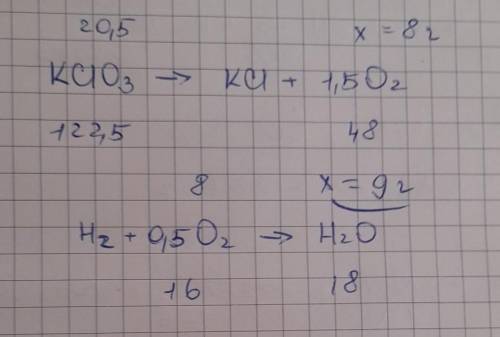 20,5 x = 8 г
KClO3 → KCl + 1,5O2
122,5 48
8 x = 9 г
H2 + 0,5O2 → H2O
16 18